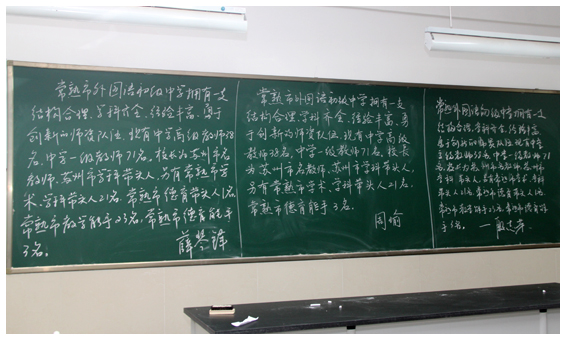 常熟市外国语初级中学拥有一支
结构合理、学科齐全、经验丰富、勇于
创新的师资队伍,现有中学高级教师38
名,中学一级教师71名,校长为苏州市名
教师、苏州市学科带头人,另有常熟市学
术、学科带头人21名,常熟市德育带头人1名,
常熟市教学能手23名,常熟市德育能手
3名。
薛
常熟市外国语初级中学拥有一支
结构合理、学科齐全、经验丰富、勇
于创新的师资队伍,现有中学高级
教师38名,中学一级教师71名,校长
为苏州市名教师、苏州市学科带头人,
另有常熟市学术、学科带头人21名,
常熟市德育能手3名。
周瑜
常熟外国语初级中学拥有一支
结构合理、学科齐全、经验丰富、
勇于创新的师资队伍,现有中学
高级教师38名,中学一级教师71
名,
学科带头人21名,常熟市德育带头人1名,
常熟市教学能手23名,常熟市德育能
手3名。